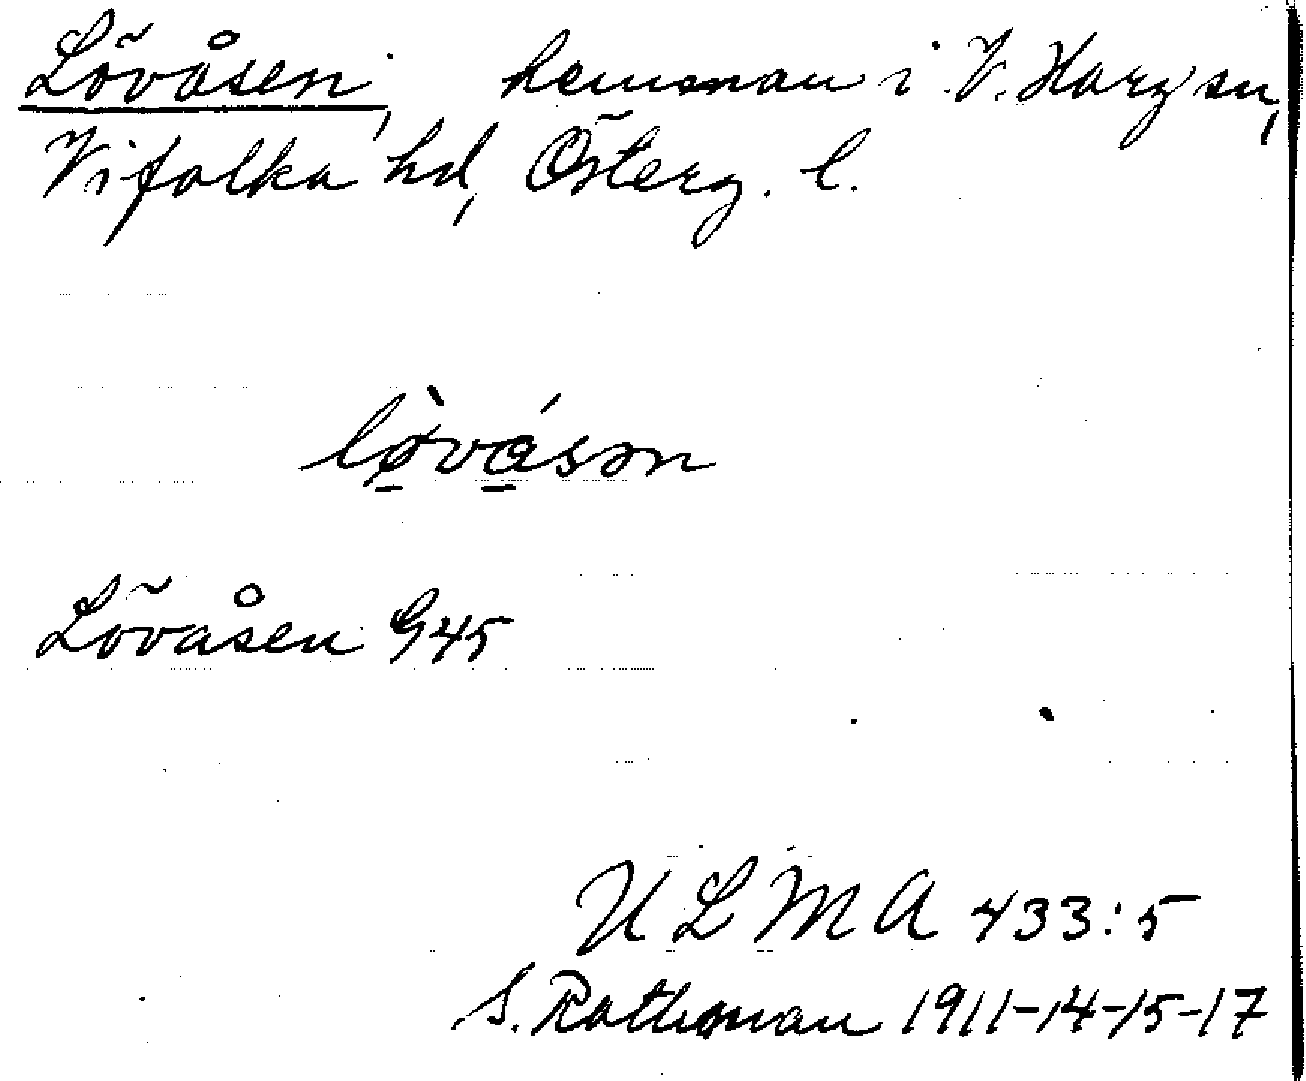 Lövåsen, hemman i V. Harg sn,
Vifolka hd, Österg. l.
lø̀vásən
Lövåsen G45
ULMA 433:5
S. Rothman 1911-14-15-17